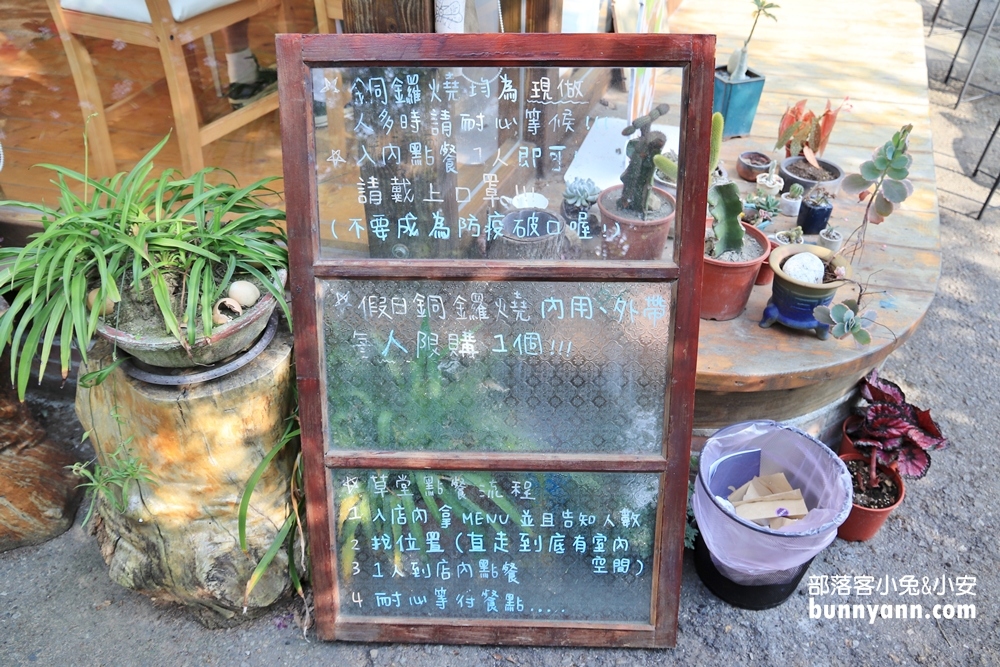 ☆ 銅鑼燒均為現做
人多時請耐心等候!!
☆ 入內點餐 1人即可
請戴上口罩!!!
(不要成為防疫破口喔!)
☆ 假日銅鑼燒內用、外帶
每人限購 1個!!!
☆ 草堂點餐流程
1 入店內拿MENU並且告知人數
2 找位置(直走到底有室內
空間)
3 1人到店內點餐
4 耐心等待餐點.....
部落客小兔&小安
bunnyann.com